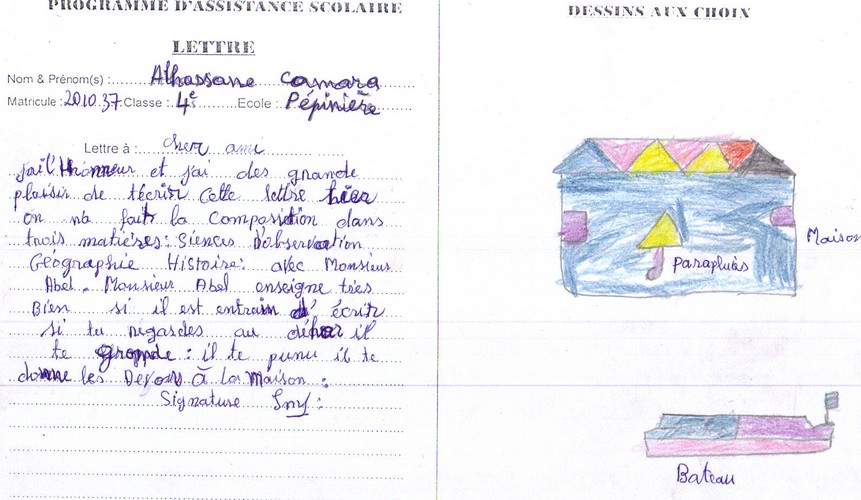 PROGRAMME D'ASSISTANCE SCOLAIRE
LETTRE
Nom & Prénom(s) : Alhassane camara
Matricule : 2010.37 Classe : 4e Ecole : Pépinière
Lettre à : cher ami
j'ai l'honneur et j'ai des grande
plaisir de t'écrir cette lettre hier
on na fait la Composition dans
trois matières : Siences D'observation
Géographie Histoire : avec Monsieur
Abel. Monsieur Abel enseigne très
Bien si il est entrain d'écrir
si tu regardes au déhor il
te groppde : il te punu il te
donne les Devors à la Maison :
Signature
DESSINS AUX CHOIX
Maison
Parapluies
Bateau